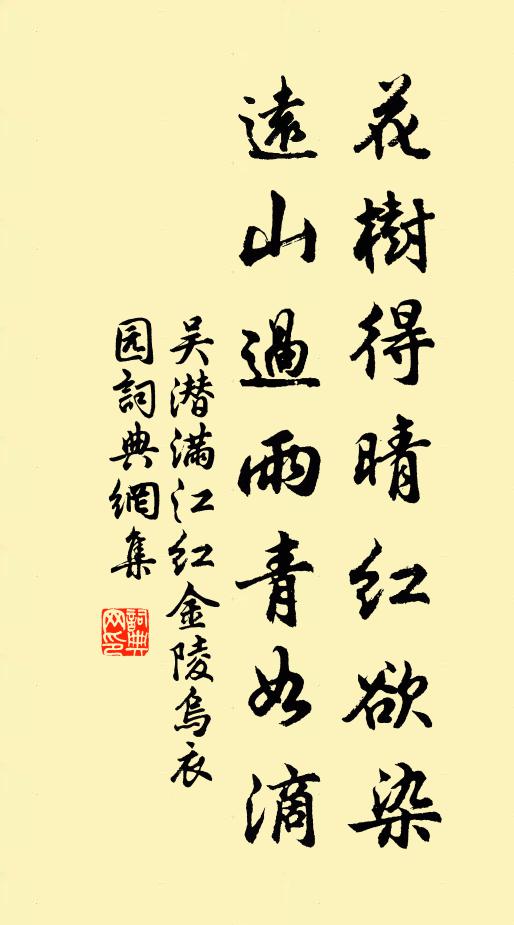 花樹得晴红欲染
遠山過雨青如滴
吴潜满江红金陵烏衣
园詞典網集
詞典
网印